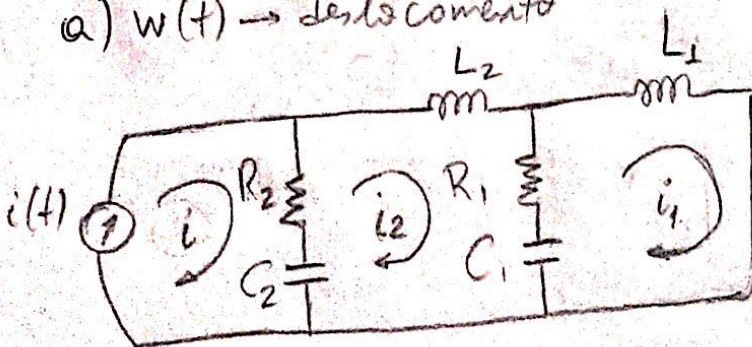 a) w(t) → deslocamento
L2
L1
i(t)
i
R2
i2
R1
i1
C2
C1